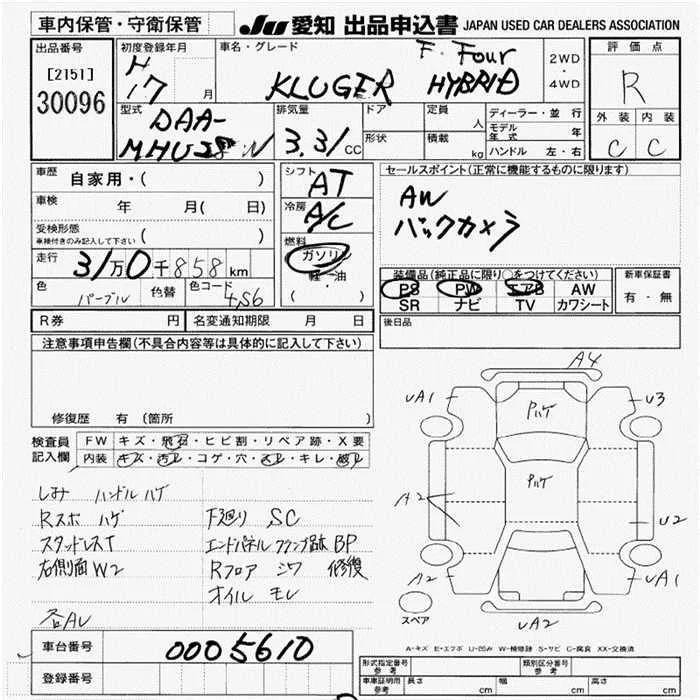 車内保管・守衛保管
JU 愛知 出品申込書 JAPAN USED CAR DEALERS ASSOCIATION
出品番号
[2151]
30096
初度登録年月
H
17 月
車名・グレード
F・Four
KLUGER HYBRID
2WD
・
4WD
評価点
R
外装 内装
C C
型式
DAA-
排気量
3.3ℓ CC
ドア
形状
定員 人
積載 kg
ディーラー・並行
モデル年式 年
ハンドル 左・右
車歴 自家用・( )
車検 年 月( 日)
受検形態
車検付きのみ記入して下さい ( )
走行 31万0千858km
色 パープル 色替 色コード 4,S6
シフト AT
冷房 A/C
燃料
ガソリン
軽油
( )
セールスポイント(正常に機能するものに限ります)
AW
バックカメラ
装備品(純正品に限り○をつけてください)
PS PW エアB AW
SR ナビ TV カワシート
新車保証書
有・無
R券 円 名変通知期限 月 日
後日品
注意事項申告欄(不具合内容等は具体的に記入して下さい)
修復歴 有 (箇所
検査員記入欄
FW キズ・飛石・ヒビ割・リペア跡・X要
内装 キズ・汚レ・コゲ・穴・スレ・キレ・破レ
しみ ハンドルハゲ
Rスポ ハゲ 下廻り SC
スタッドレスT エンドパネル クランプ跡 BP
右側面W2 Rフロア シワ 修復
オイル モレ
各AU
A4
UA1 U3
Pハゲ
Pハゲ
A2 U2
A2 UA1
スペア UA2
A-キズ E-エクボ U-凹み W-補修跡 S-サビ C-腐食 XX-交換済
車台番号 0005610
登録番号
形式指定番号 参考 類別区分番号 参考
車庫証明用 参考 長さ cm 幅 cm 高さ cm